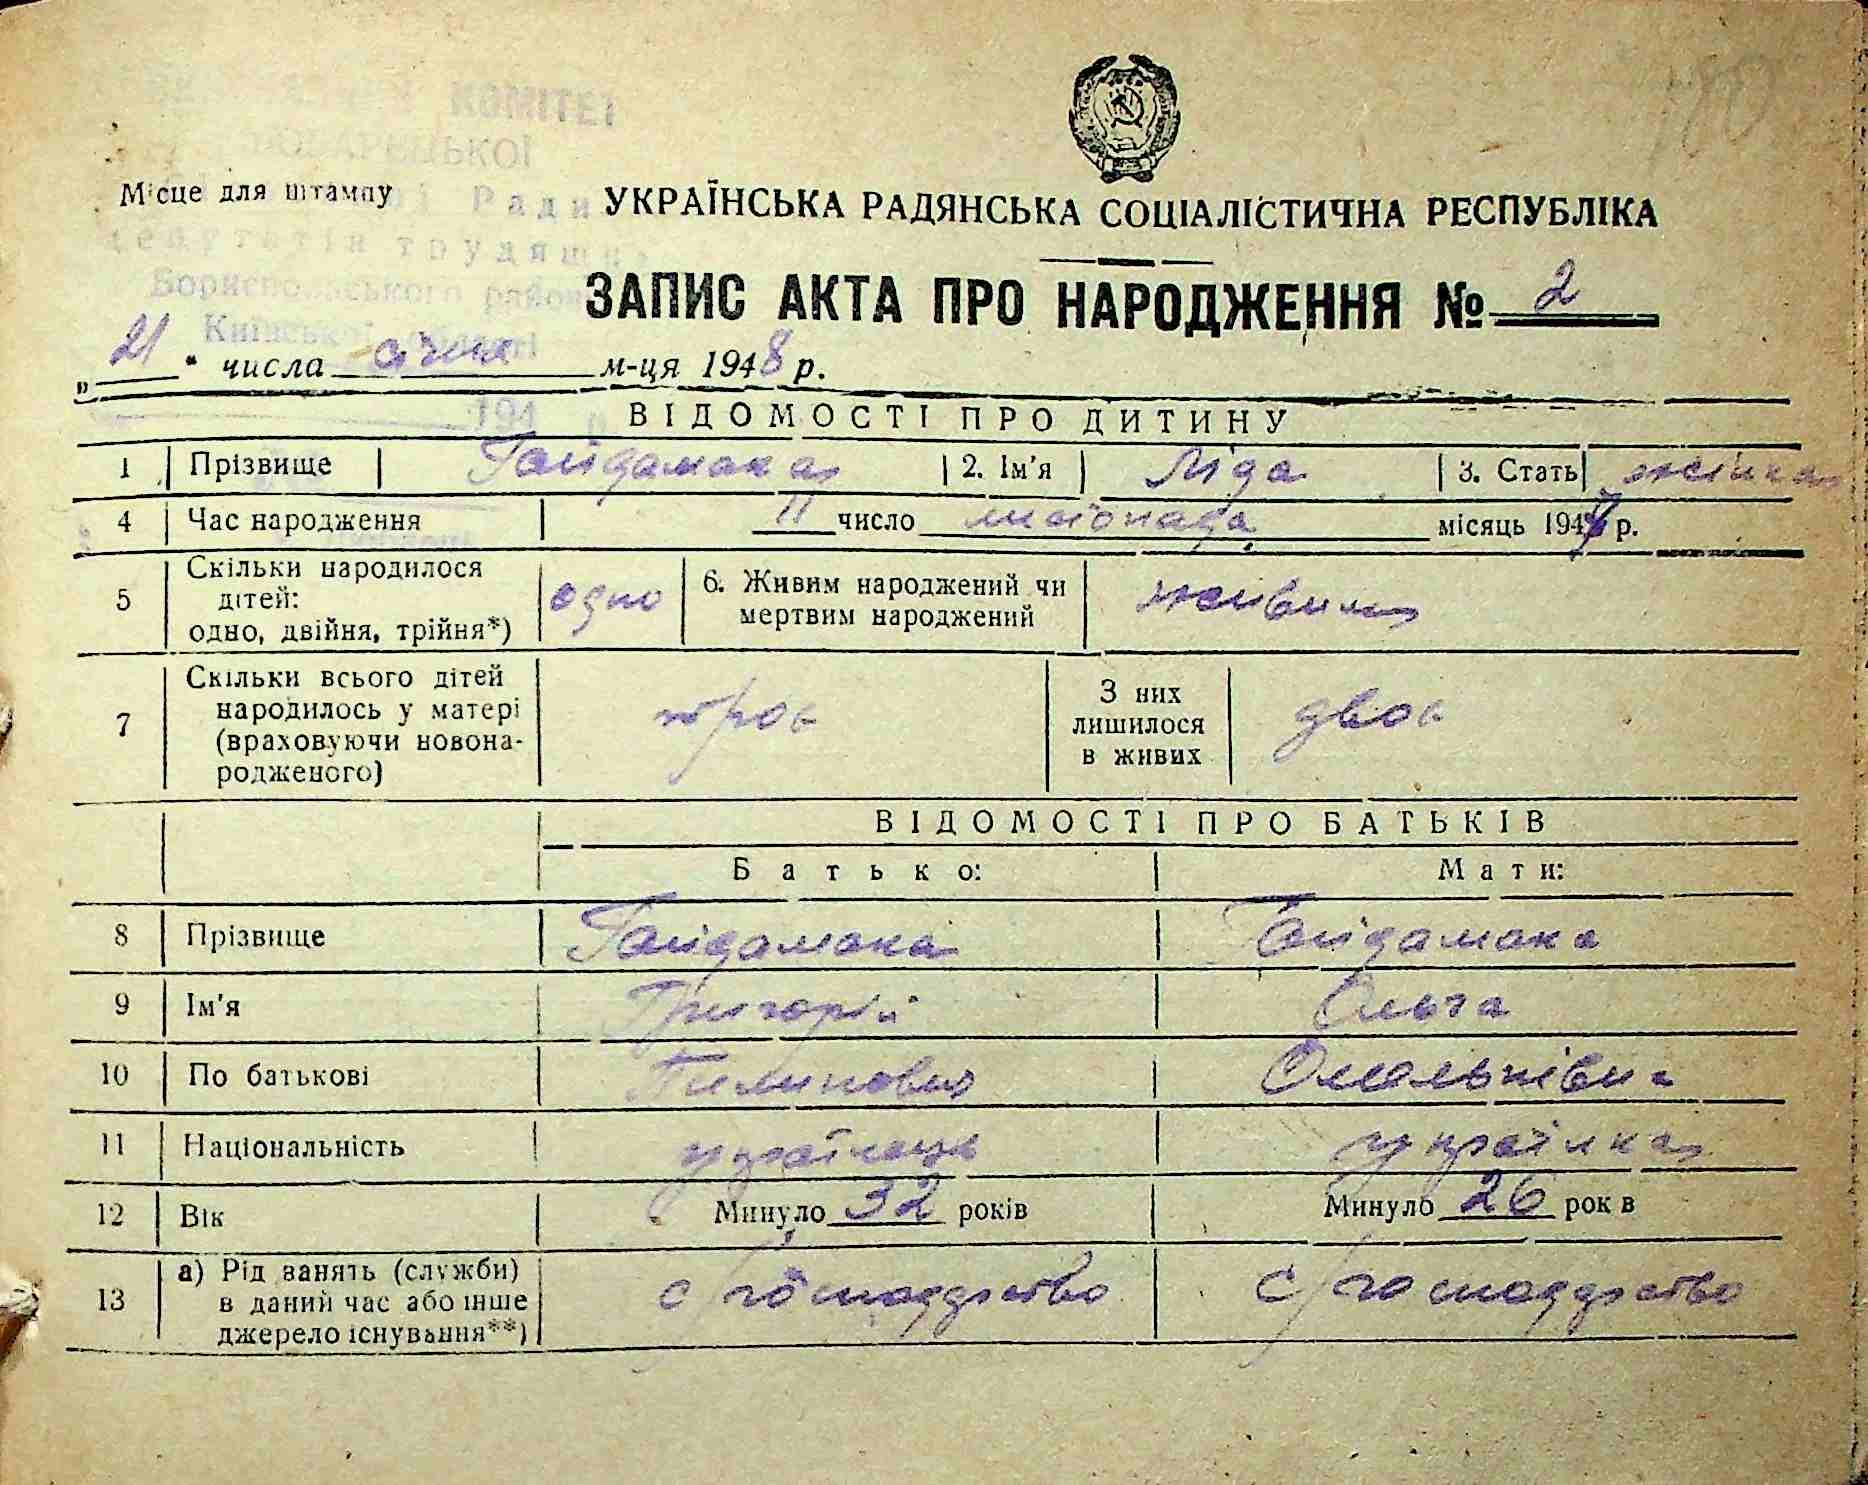 180
КОМІТЕТ
Ради
депутатів трудящих
Бориспольського району
Київської області
194 р.
Місце для штампу
УКРАЇНСЬКА РАДЯНСЬКА СОЦІАЛІСТИЧНА РЕСПУБЛІКА
ЗАПИС АКТА ПРО НАРОДЖЕННЯ № 2
„21" числа січня м-ця 1948 р.
ВІДОМОСТІ ПРО ДИТИНУ
1 Прізвище Гайдамака 2. Ім'я Ліда 3. Стать жінка
4 Час народження 11 число листопада місяць 1947 р.
5 Скільки народилося дітей: одно, двійня, трійня*) одно 6. Живим народжений чи мертвим народжений живим
7 Скільки всього дітей народилось у матері (враховуючи новонародженого) троє З них лишилося в живих двоє
ВІДОМОСТІ ПРО БАТЬКІВ
Батько: Мати:
8 Прізвище Гайдамака Гайдамака
9 Ім'я Григорій Ольга
10 По батькові Пилипович Омельківна
11 Національність українець українка
12 Вік Минуло 32 років Минуло 26 рок в
13 а) Рід занять (служби) в даний час або інше джерело існування**) с/господарство с/господарство